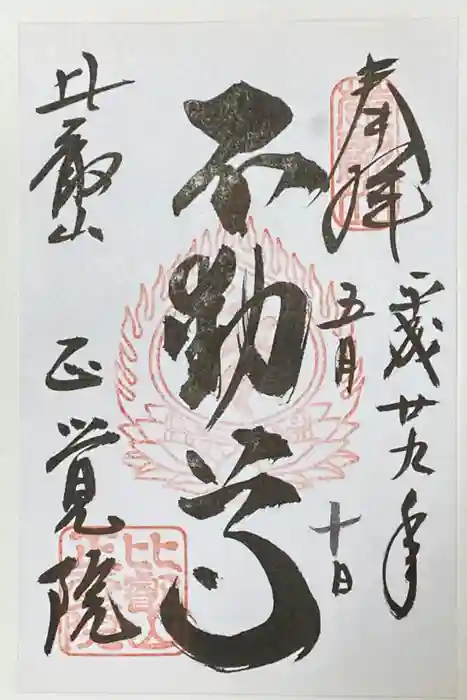 奉拝
平成廿九年
五月
十日
不動尊
比叡山
正覚院